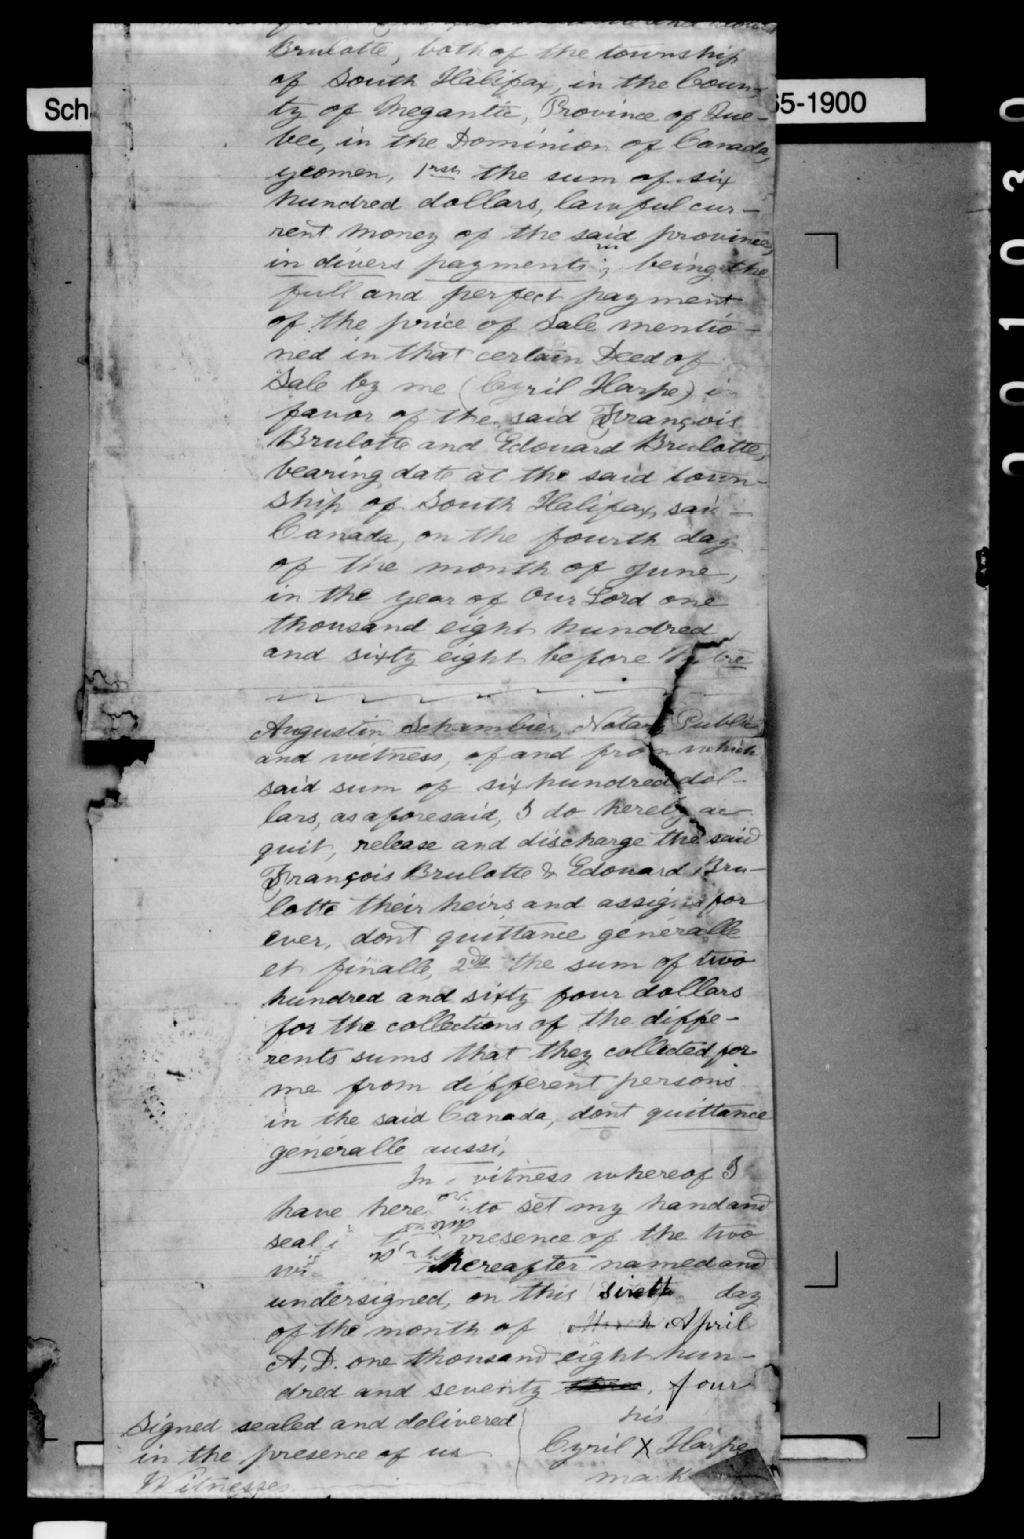 Brulotte, both of the township
of South Halifax, in the Coun-
ty of Megantic, Province of Que-
bec, in the Dominion of Canada,
yeomen, 1rst, the sum of six
hundred dollars, lawful cur-
rent money of the said province,
in divers payments; being the
full and perfect payment
of the price of Sale mentio-
ned in that certain Deed of
Sale by me (Cyril Harpe) in
favor of the said François
Brulotte and Edouard Brulotte,
bearing date at the said town-
ship of South Halifax, said
Canada, on the fourth day
of the month of June,
in the year of Our Lord one
thousand eight hundred
and sixty eight before Mtre
Augustin Schambier, Notary Public
and witness, of and from which
said sum of six hundred dol-
lars, as aforesaid, I do hereby ac-
quit, release and discharge the said
François Brulotte & Edouard Bru-
lotte their heirs and assigns for
ever, dont quittance généralle
et finalle, 2dly the sum of two
hundred and sixty four dollars
for the collections of the diffe-
rents sums that they collected for
me from different persons
in the said Canada, dont quittance
généralle aussi,
In witness whereof I
have here to set my hand and
seal presence of the two
hereafter named and
undersigned, on this sixth day
of the month of March April
A.D. one thousand eight hun-
dred and seventy three, four
Signed sealed and delivered
in the presence of us
Witnesses
his
Cyril X Harpe
mark
Sch 65-1900
2 0 1 0 3 0